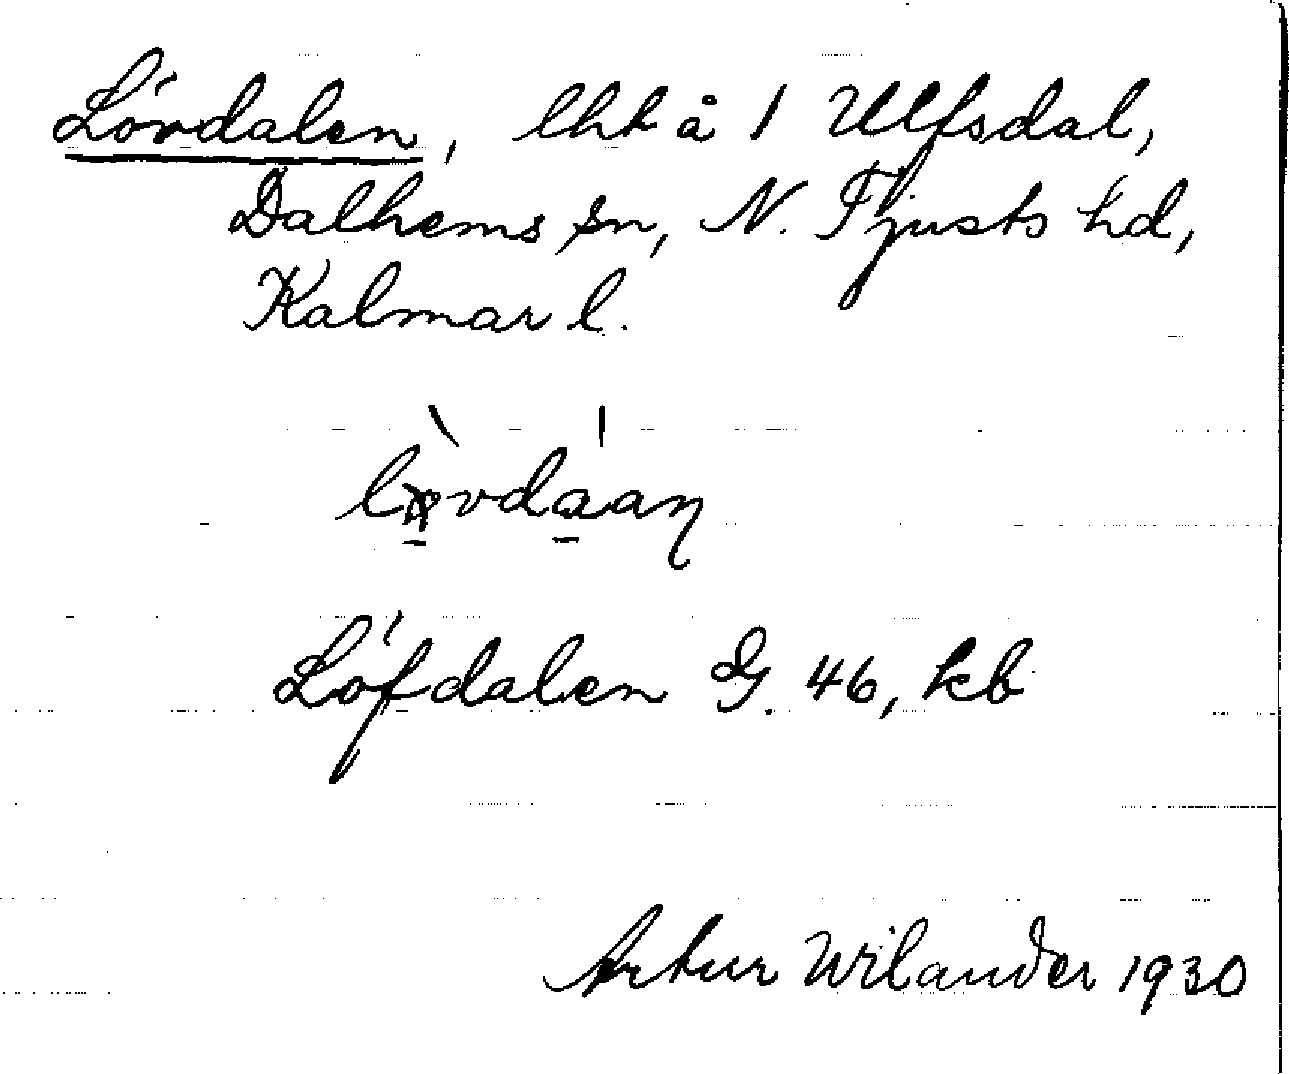 Lövdalen, lht å 1 Ulfsdal,
Dalhems sn, N. Tjusts hd,
Kalmar l.
Löfdalen G. 46, kb
Artur Wilander 1930